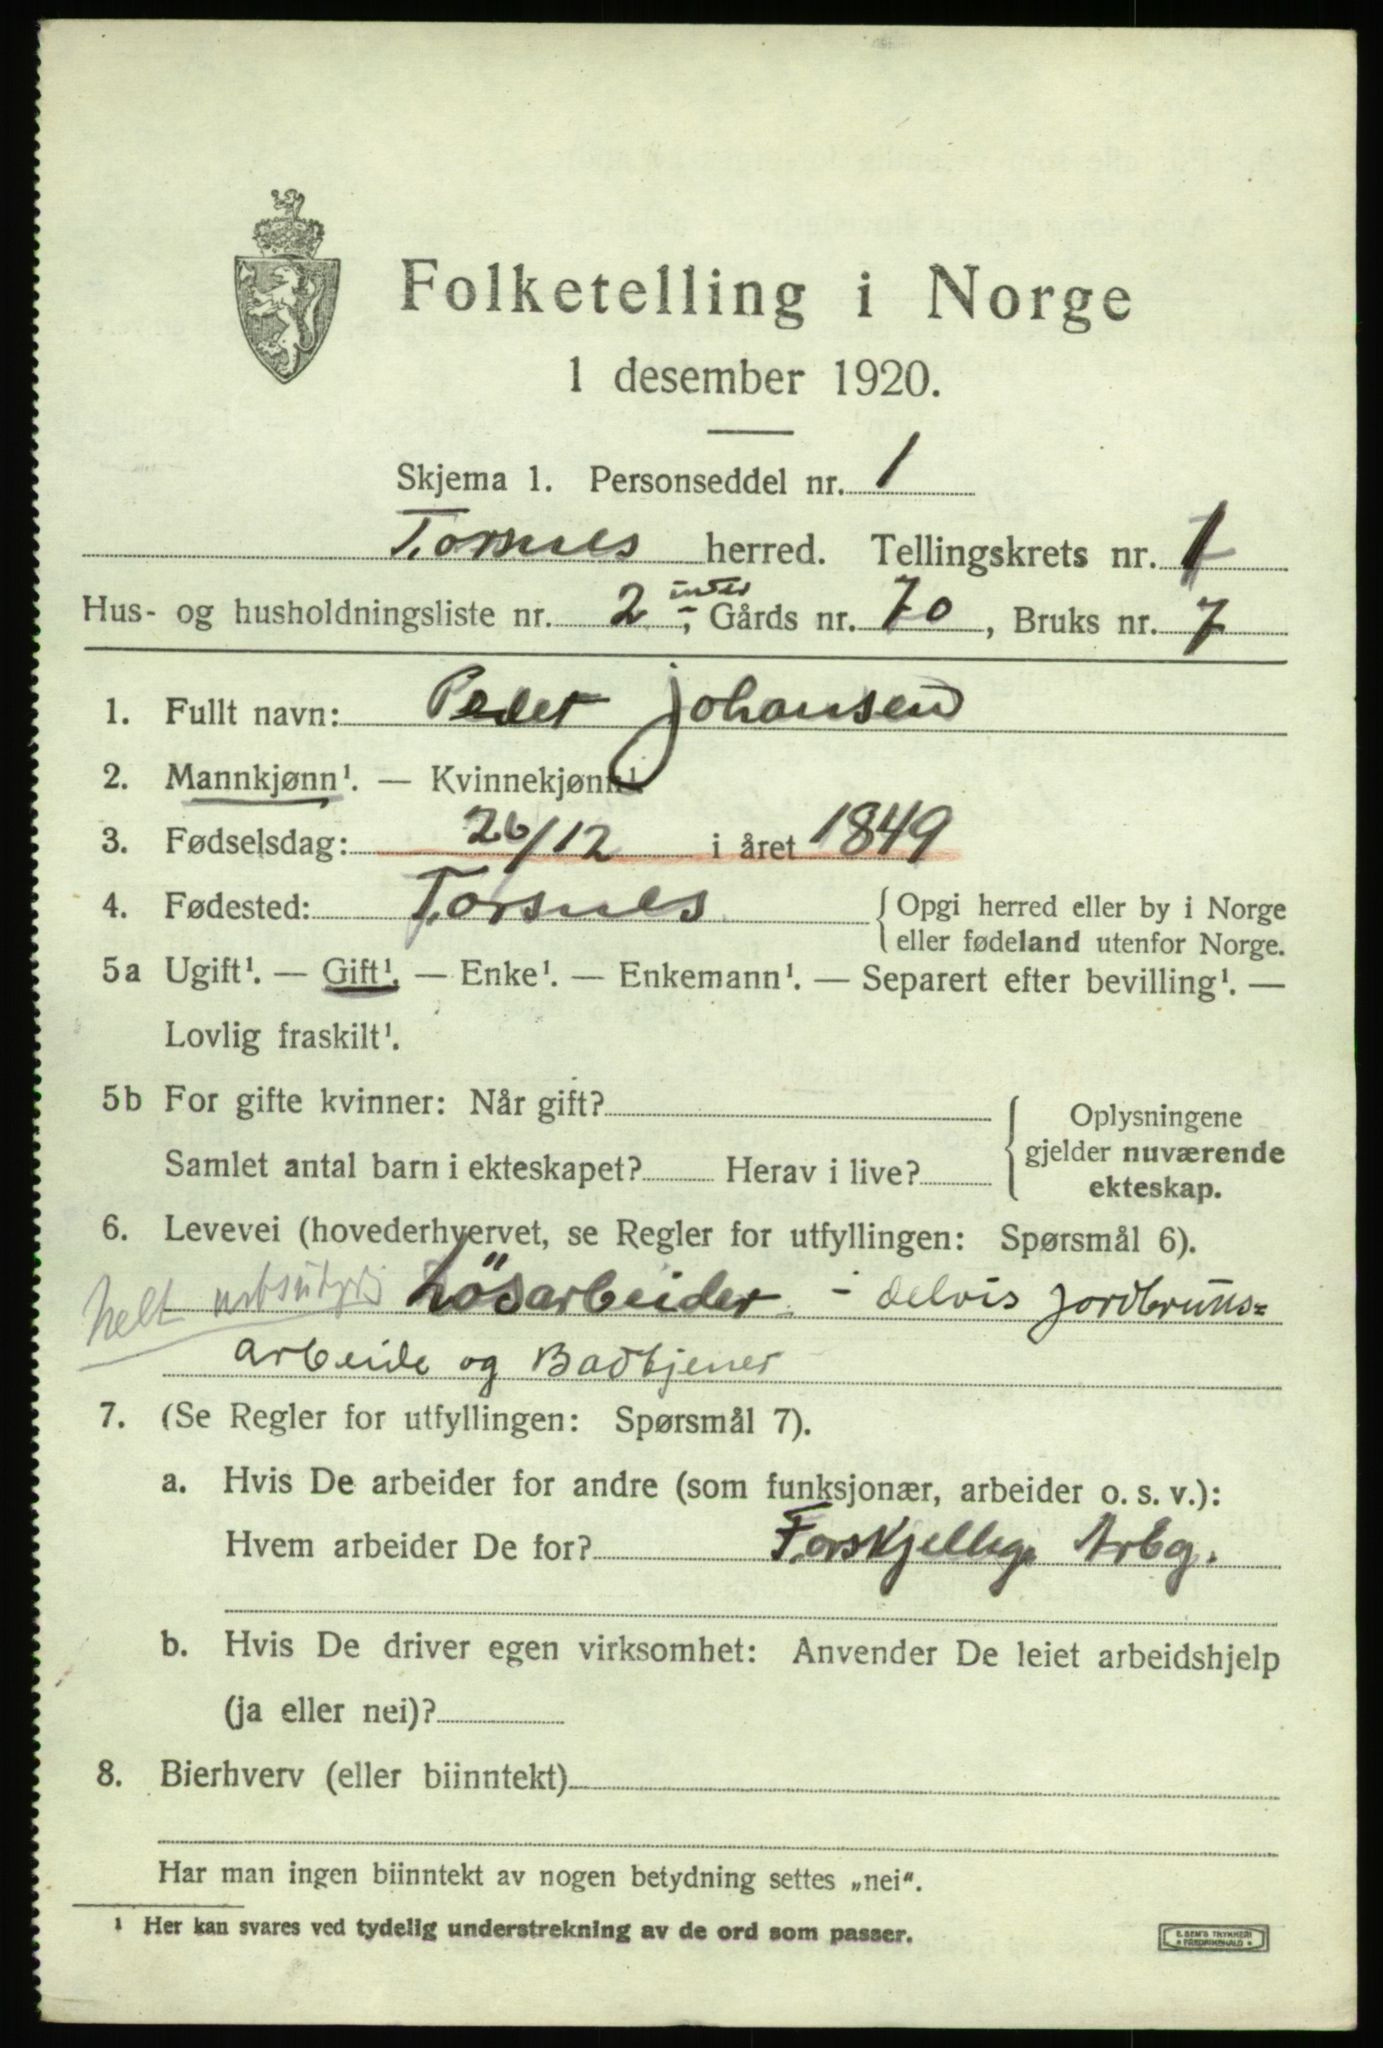 Folketelling i Norge
1 desember 1920.
Skjema 1. Personseddel nr. 1
Torsnes herred. Tellingskrets nr. 1
Hus- og husholdningsliste nr. 2, Gårds nr. 70, Bruks nr. 7
1. Fullt navn: Peder Johansen
2. Mannkjønn¹. — Kvinnekjønn¹.
3. Fødselsdag: 26/12 i året 1849
4. Fødested: Torsnes { Opgi herred eller by i Norge
eller fødeland utenfor Norge.
5a Ugift¹. — Gift¹. — Enke¹. — Enkemann¹. — Separert efter bevilling¹. —
Lovlig fraskilt¹.
5b For gifte kvinner: Når gift? { Oplysningene
gjelder nuværende
Samlet antal barn i ekteskapet? Herav i live? ekteskap.
6. Levevei (hovederhvervet, se Regler for utfyllingen: Spørsmål 6).
helt Lösarbeider - delvis jordbruks=
arbeide og Badtjener
7. (Se Regler for utfyllingen: Spørsmål 7).
a. Hvis De arbeider for andre (som funksjonær, arbeider o. s. v.):
Hvem arbeider De for? Forskjellige Arbg.
b. Hvis De driver egen virksomhet: Anvender De leiet arbeidshjelp
(ja eller nei)?
8. Bierhverv (eller biinntekt)
Har man ingen biinntekt av nogen betydning settes „nei“.
¹ Her kan svares ved tydelig understrekning av de ord som passer.
E. SEM'S TRYKKERI
FREDRIKSHALD